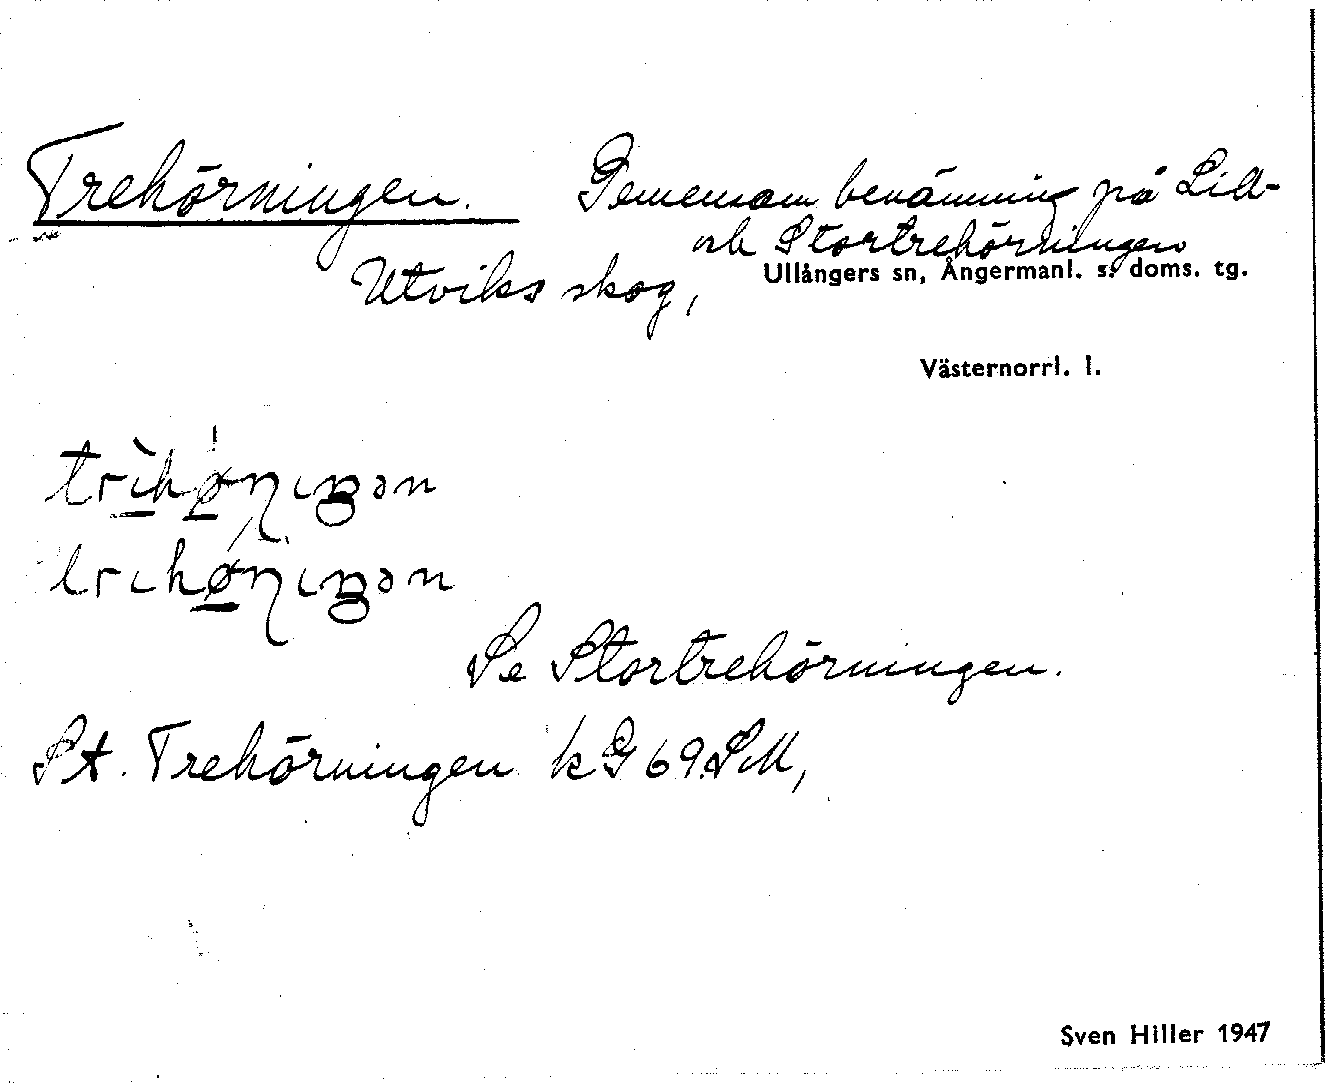 Trehörningen. Gemensam benämning på Lill-
och Stortrehörningen
Utviks skog, Ullångers sn, Ångermanl. s. doms. tg.
Västernorrl. l.
Se Stortrehörningen.
St. Trehörningen kG 69 SM,
Sven Hiller 1947